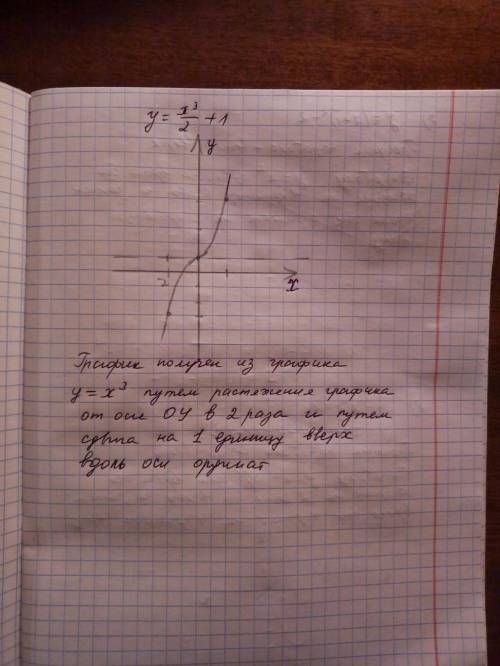 y = x³/2 + 1
y
2
x
График получен из графика
y = x³ путем растяжения графика
от оси OY в 2 раза и путем
сдвига на 1 единицу вверх
вдоль оси ординат